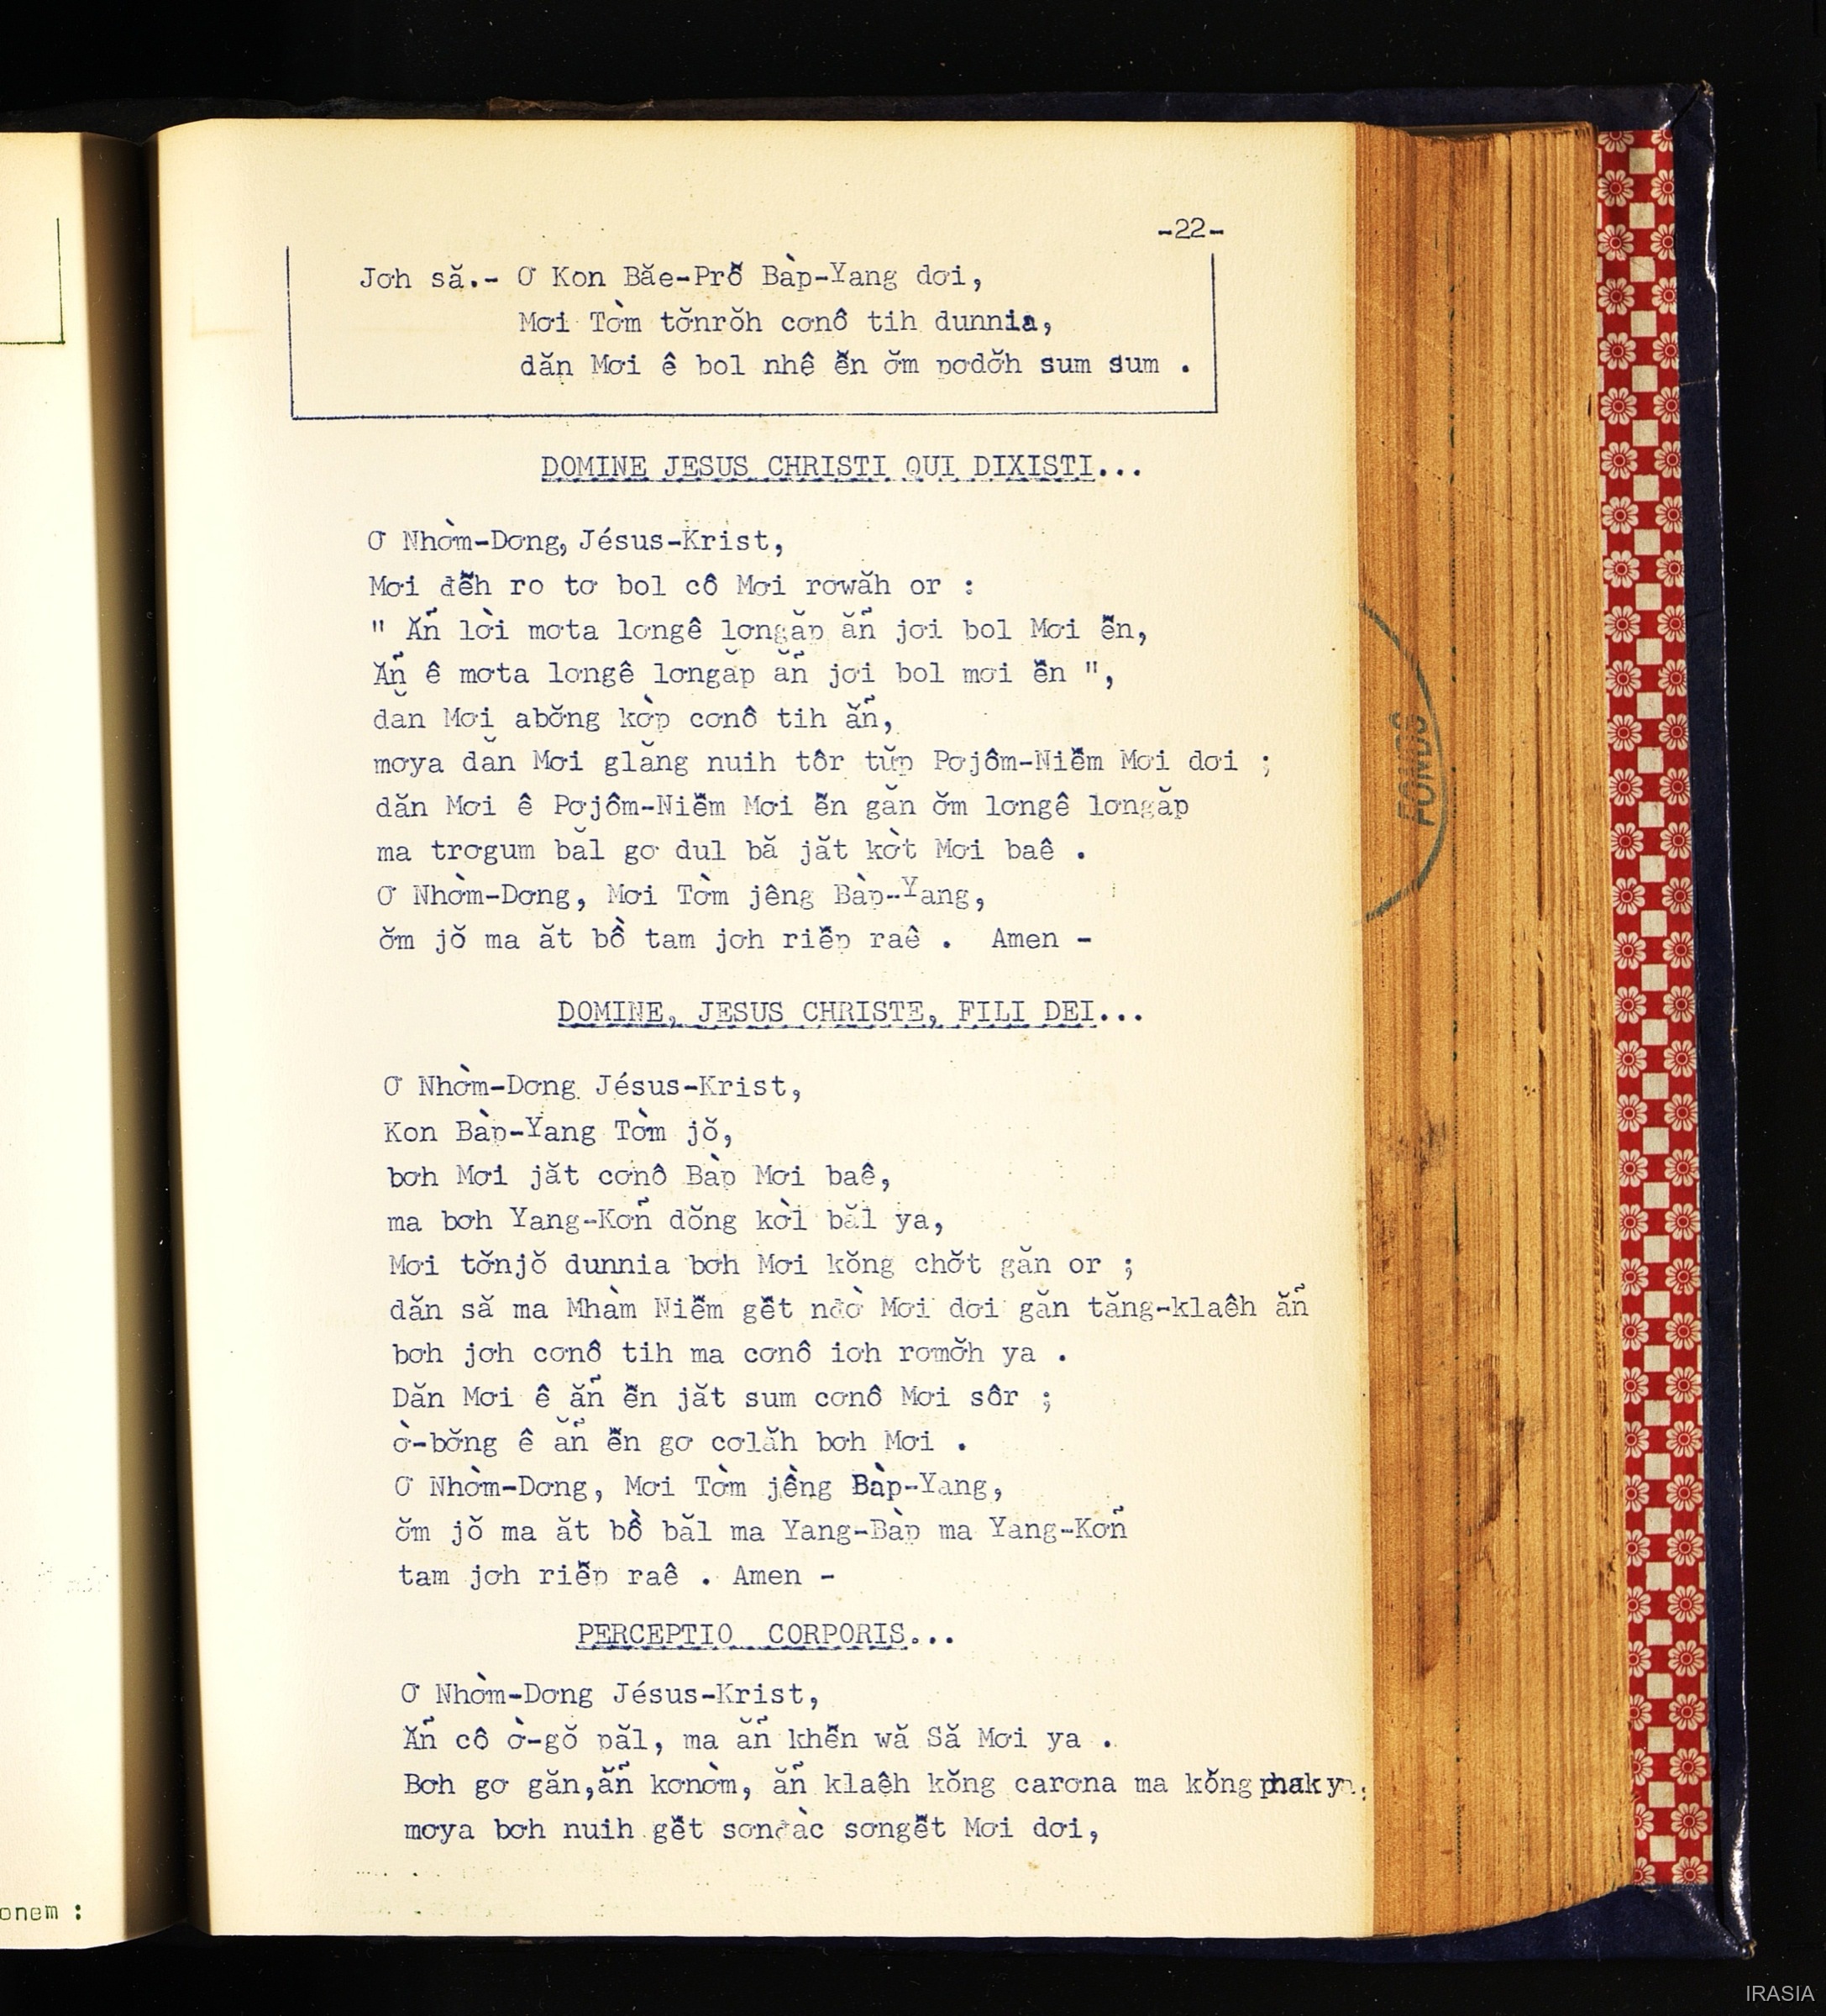 -22-
Jơh să.- Ơ Kon Băe-Prỗ Bàp-Yang dơi,
Mơi Tờm tơ̆nrŏh cơnô tih dunnia,
dăn Mơi ê bol nhê ễn ơ̆m pơdơ̆h sum sum .
DOMINE JESUS CHRISTI QUI DIXISTI...
Ơ Nhờm-Dơng, Jésus-Krist,
Mơi đễh ro tơ bol cô Mơi rơwăh or :
" Ắn lời mơta lơngê lơngăp ắn jơi bol Mơi ễn,
Ắn ê mơta lơngê lơngăp ắn jơi bol mơi ễn ",
dăn Mơi abơ̆ng kờp cơnô tih ắn,
mơya dăn Mơi glăng nuih tôr tŭp Pơjôm-Niễm Mơi dơi ;
dăn Mơi ê Pơjôm-Niễm Mơi ễn găn ơ̆m lơngê lơngăp
ma trơgum băl gơ dul bă jăt kờt Mơi baê .
Ơ Nhờm-Dơng, Mơi Tờm jêng Bàp-Yang,
ơ̆m jŏ ma ăt bồ tam jơh riễp raê . Amen -
DOMINE, JESUS CHRISTE, FILI DEI...
Ơ Nhờm-Dơng Jésus-Krist,
Kon Bàp-Yang Tờm jŏ,
bơh Mơi jăt cơnô Bàp Mơi baê,
ma bơh Yang-Kơn̉ dŏng kời băl ya,
Mơi tơ̆njŏ dunnia bơh Mơi kŏng chơ̆t găn or ;
dăn să ma Mhàm Niễm gễt Mơi dơi găn tăng-klaêh ắn
bơh jơh cơnô tih ma cơnô ioh rơmơ̆h ya .
Dăn Mơi ê ắn ễn jăt sum cơnô Mơi sôr ;
ờ-bơ̆ng ê ắn ễn gơ cơlăh bơh Mơi .
Ơ Nhờm-Dơng, Mơi Tờm jềng Bàp-Yang,
ơ̆m jŏ ma ăt bồ băl ma Yang-Bàp ma Yang-Kơn̉
tam jơh riễp raê . Amen -
PERCEPTIO CORPORIS...
Ơ Nhờm-Dơng Jésus-Krist,
Ắn cô ờ-gŏ păl, ma ắn khễn wă Să Mơi ya .
Bơh gơ găn,ắn kơnờm, ắn klaêh kŏng carơna ma kŏng phak ya;
mơya bơh nuih gễt sơngễt Mơi dơi,
onem :
FONDS
IRASIA